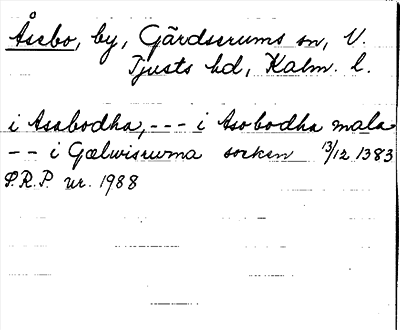 Åsebo, by, Gärdserums sn, V.
Tjusts hd, Kalm. l.
i Asabodha, --- i Asobodha mala
-- i Gælwisrwma socken 13/12 1383
S.R.P. nr. 1988